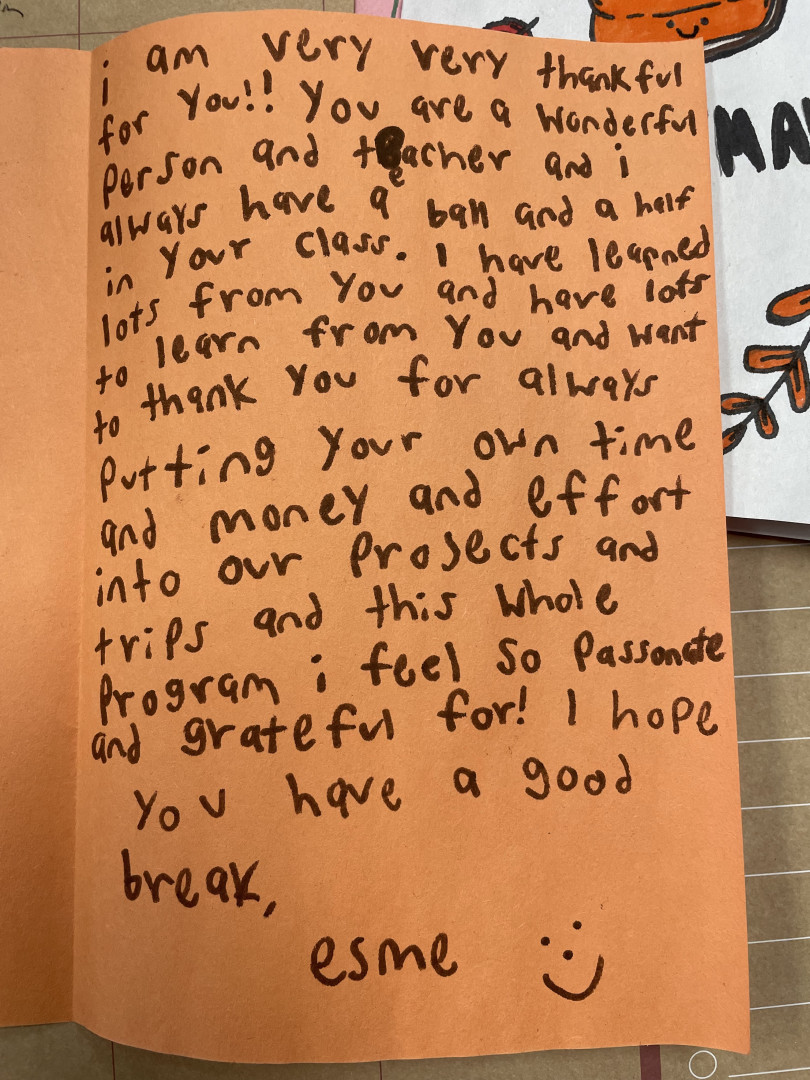 i am very very thankful
for you!! you are a wonderful
person and teacher and i
always have a ball and a half
in your class. I have learned
lots from you and have lots
to learn from you and want
to thank you for always
putting your own time
and money and effort
into our projects and
trips and this whole
program i feel so passonate
and grateful for! I hope
you have a good
break,
esme
MA